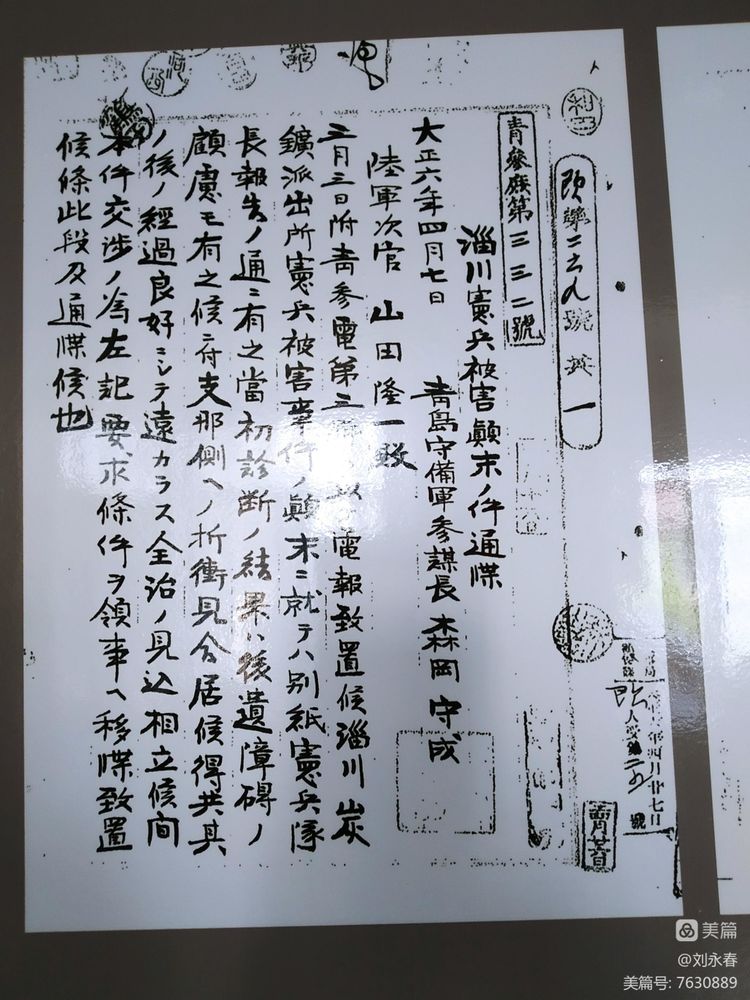 青參庶第三三二號
淄川憲兵被害顛末ノ件通牒
大正六年四月七日 青島守備軍參謀長 森岡守成
陸軍次官 山田隆一殿
三月三日附青參電第三 電報致置候淄川炭
鑛派出所憲兵被害事件ノ顛末ニ就テハ別紙憲兵隊
長報告ノ通ニ有之當初診断ノ結果ハ後遺障碍ノ
顧慮モ有之候ニ付支那側ヘノ折衝見合居候得共其
ノ後ノ經過良好ニシテ遠カラス全治ノ見込相立候間
本件交渉ノ爲左記要求條件ヲ領事ヘ移牒致置
候條此段及通牒候也
美篇
@刘永春
美篇号: 7630889